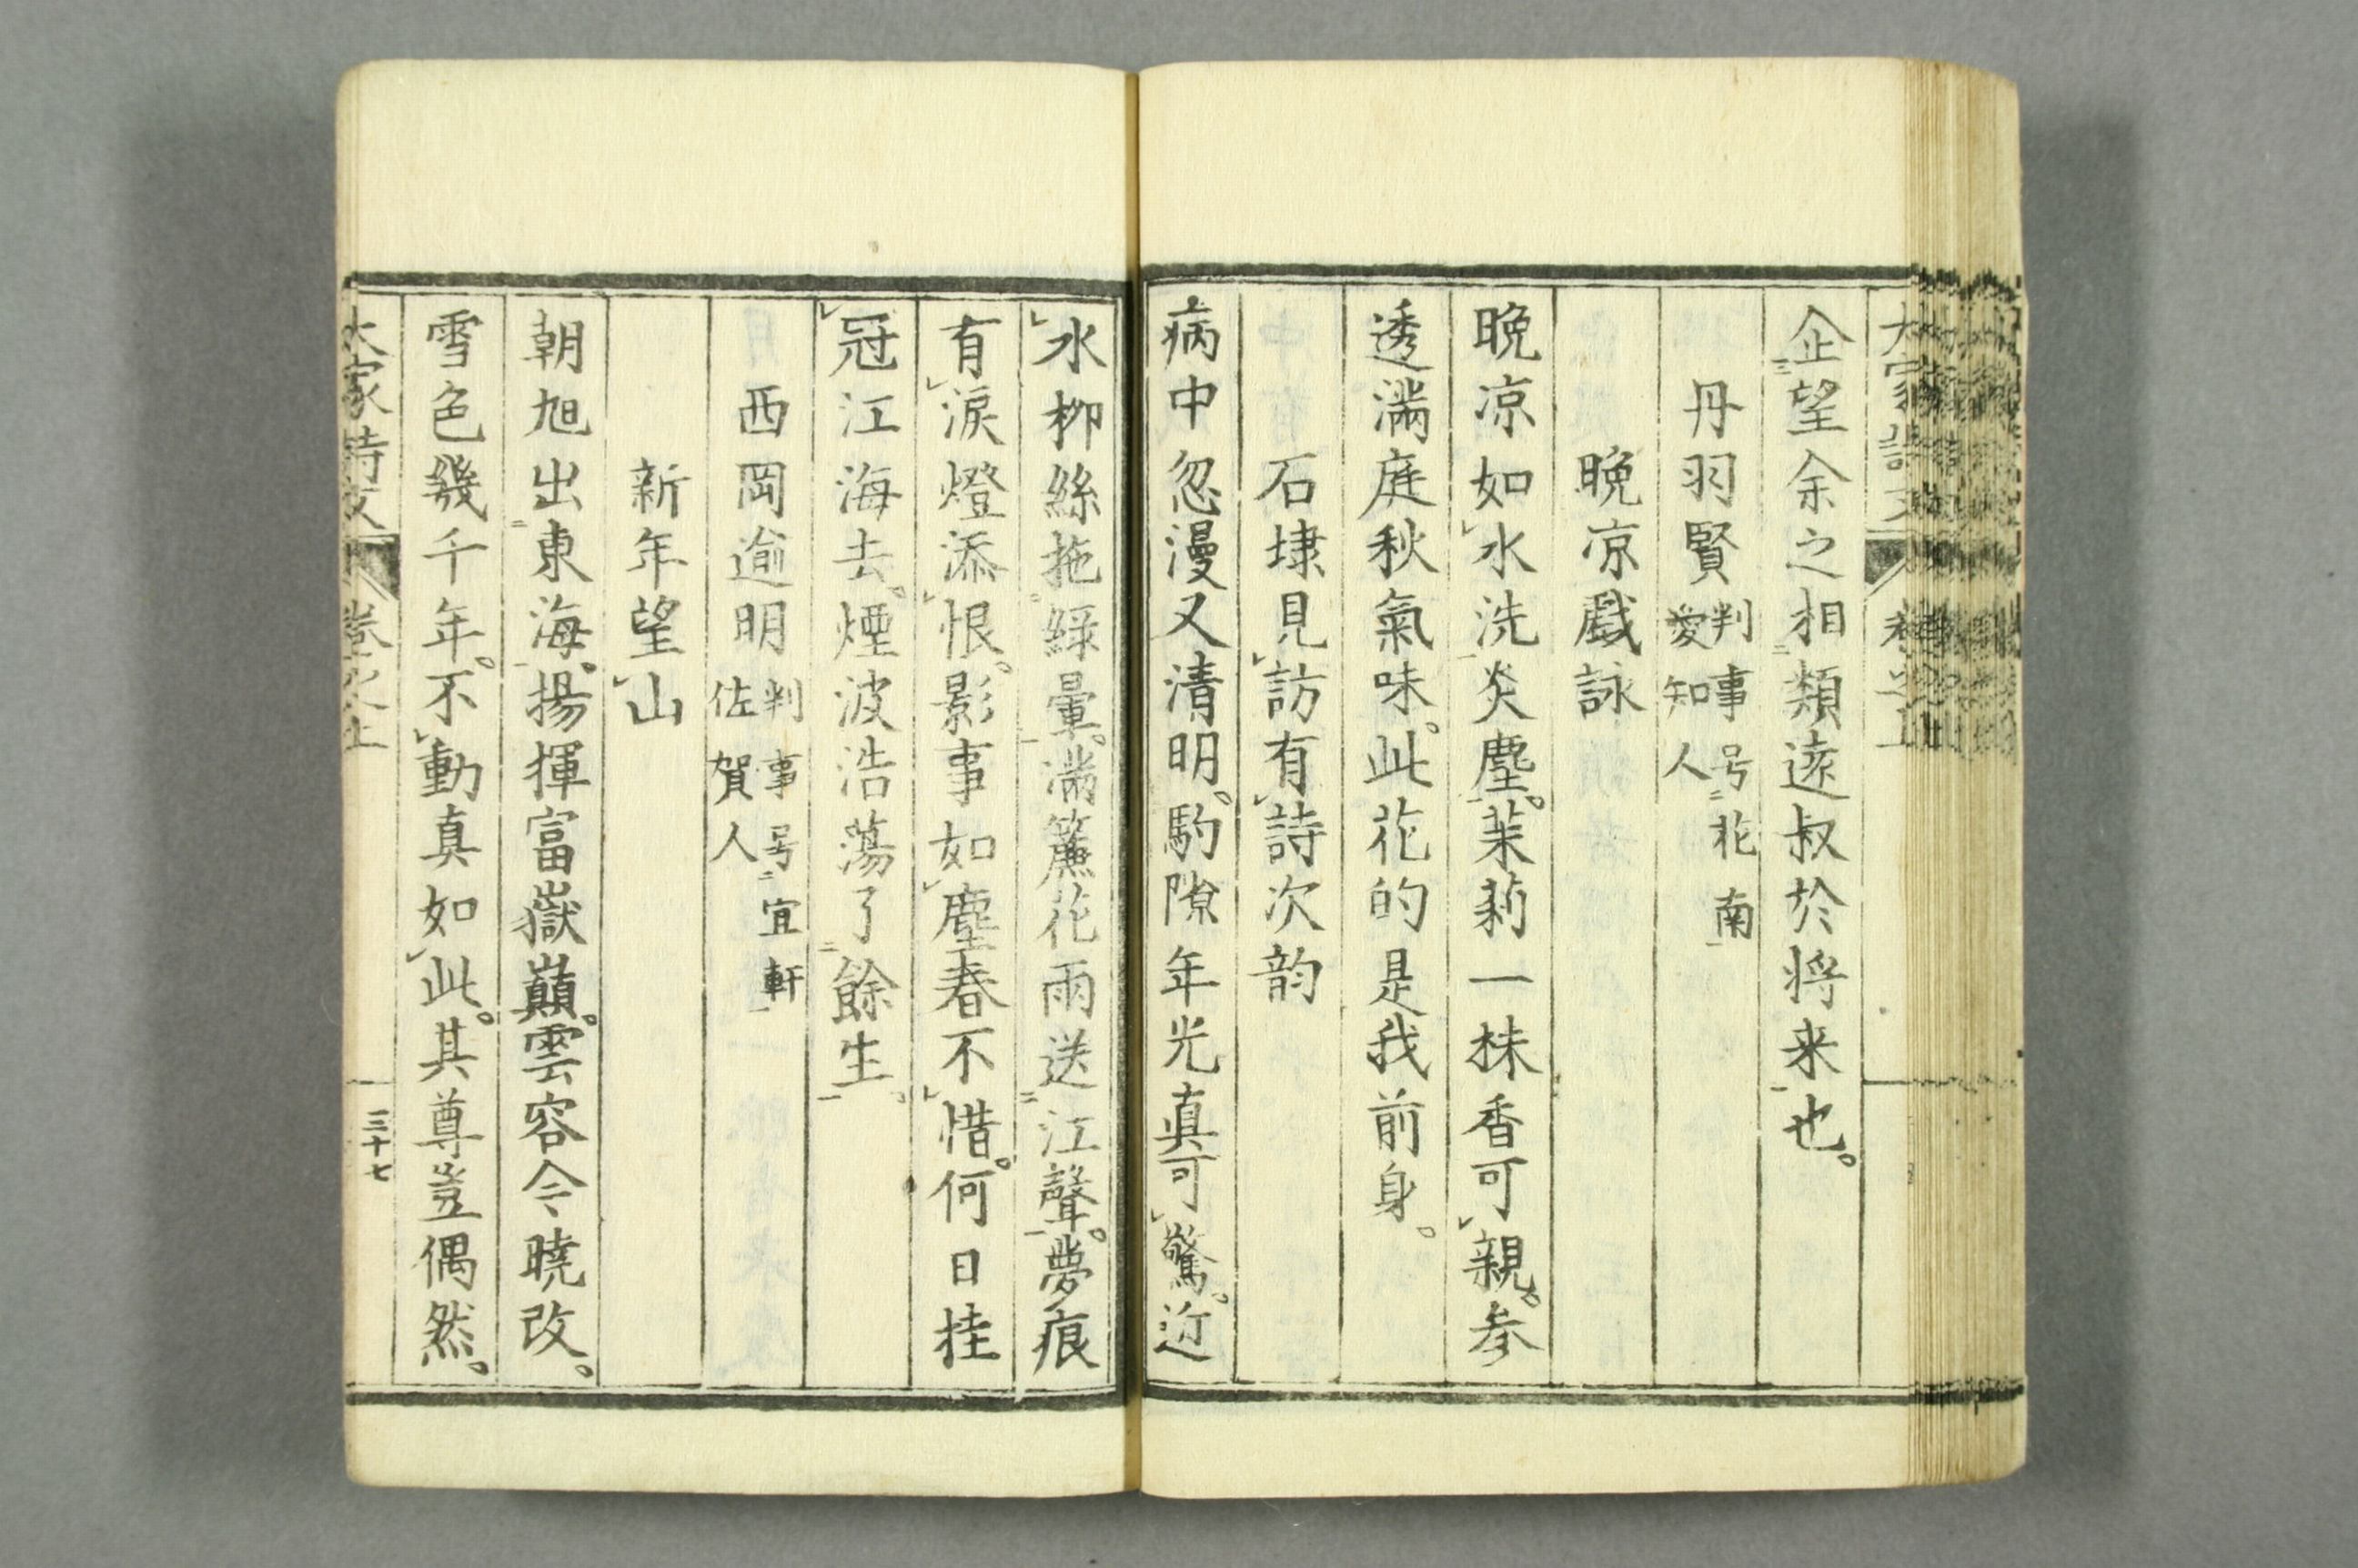 企望余之相類遠叔於将来也。
丹羽賢 判事号花南
愛知人
晩凉戯詠
晩凉如水洗炎塵。茉莉一抹香可親。参
透満庭秋氣味。此花的是我前身。
石埭見訪有詩次韵
病中忽漫又清明。駒隙年光真可驚。近
水柳絲拖緑暈。満簾花雨送江聲。夢痕
有涙燈添恨。影事如塵春不惜。何日挂
冠江海去。煙波浩蕩了餘生。
西岡逾明 判事号宜軒
佐賀人
新年望山
朝旭出東海。揚揮富嶽巓。雲容今曉改。
雪色幾千年。不動真如此。其尊豈偶然。
大家詩文 卷之上
三十七